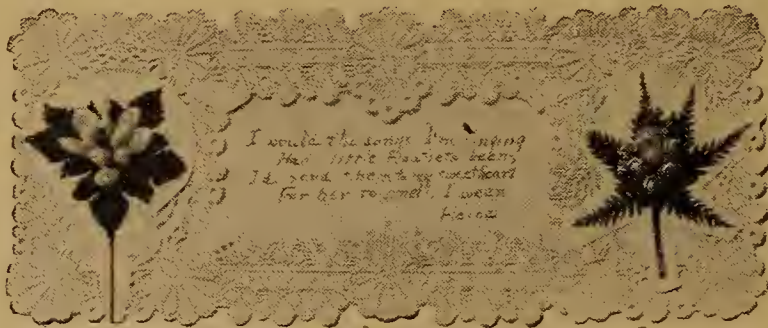 I would the songs I'm singing
Had little flowers been,
I'd send them to my sweetheart
For her to smell, I ween
Heine